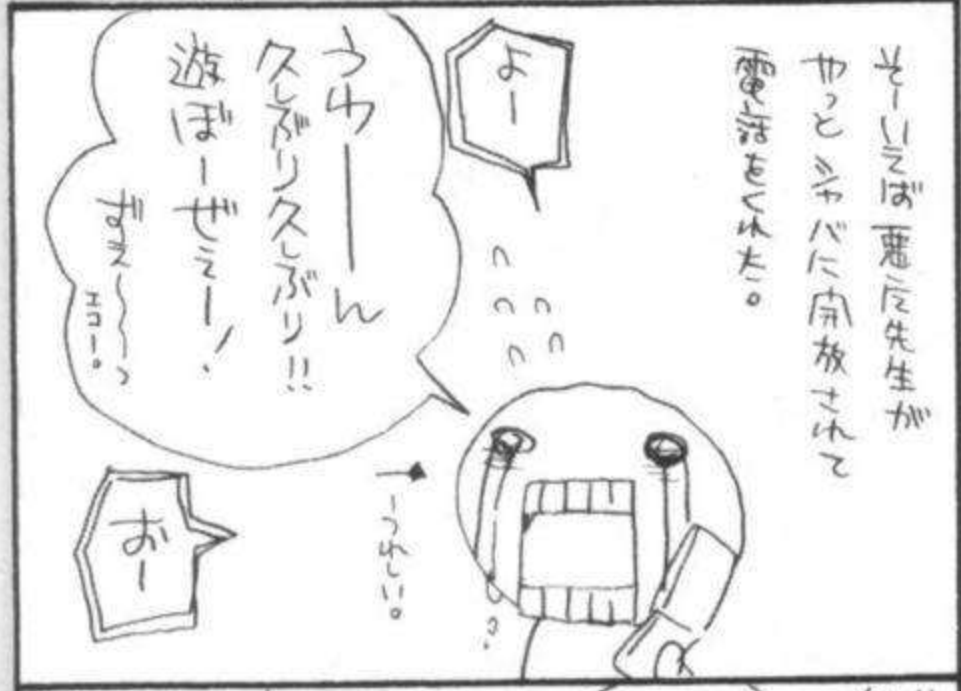 そーいえば悪元先生が
やっとシャバに開放されて
電話をくれた。
よー
うわーーん
久しぶり久しぶり!!
遊ぼーぜえー!
ずえ〜〜〜っ
エコー。
うれしい。
おー